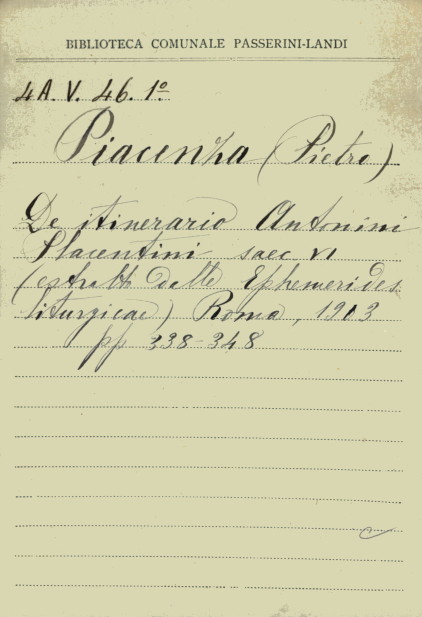 BIBLIOTECA COMUNALE PASSERINI-LANDI
4A. V. 46. 1º
Piacenza (Pietro)
De itinerario Antonini
Placentini saec VI
(estratto dalle Ephemerides
liturgicae) Roma, 1903
pp 338-348